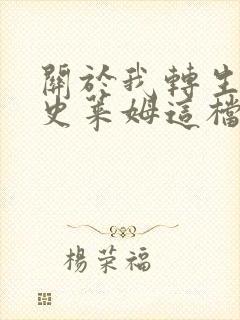 關於我轉生
史萊姆這檔
楊荣福